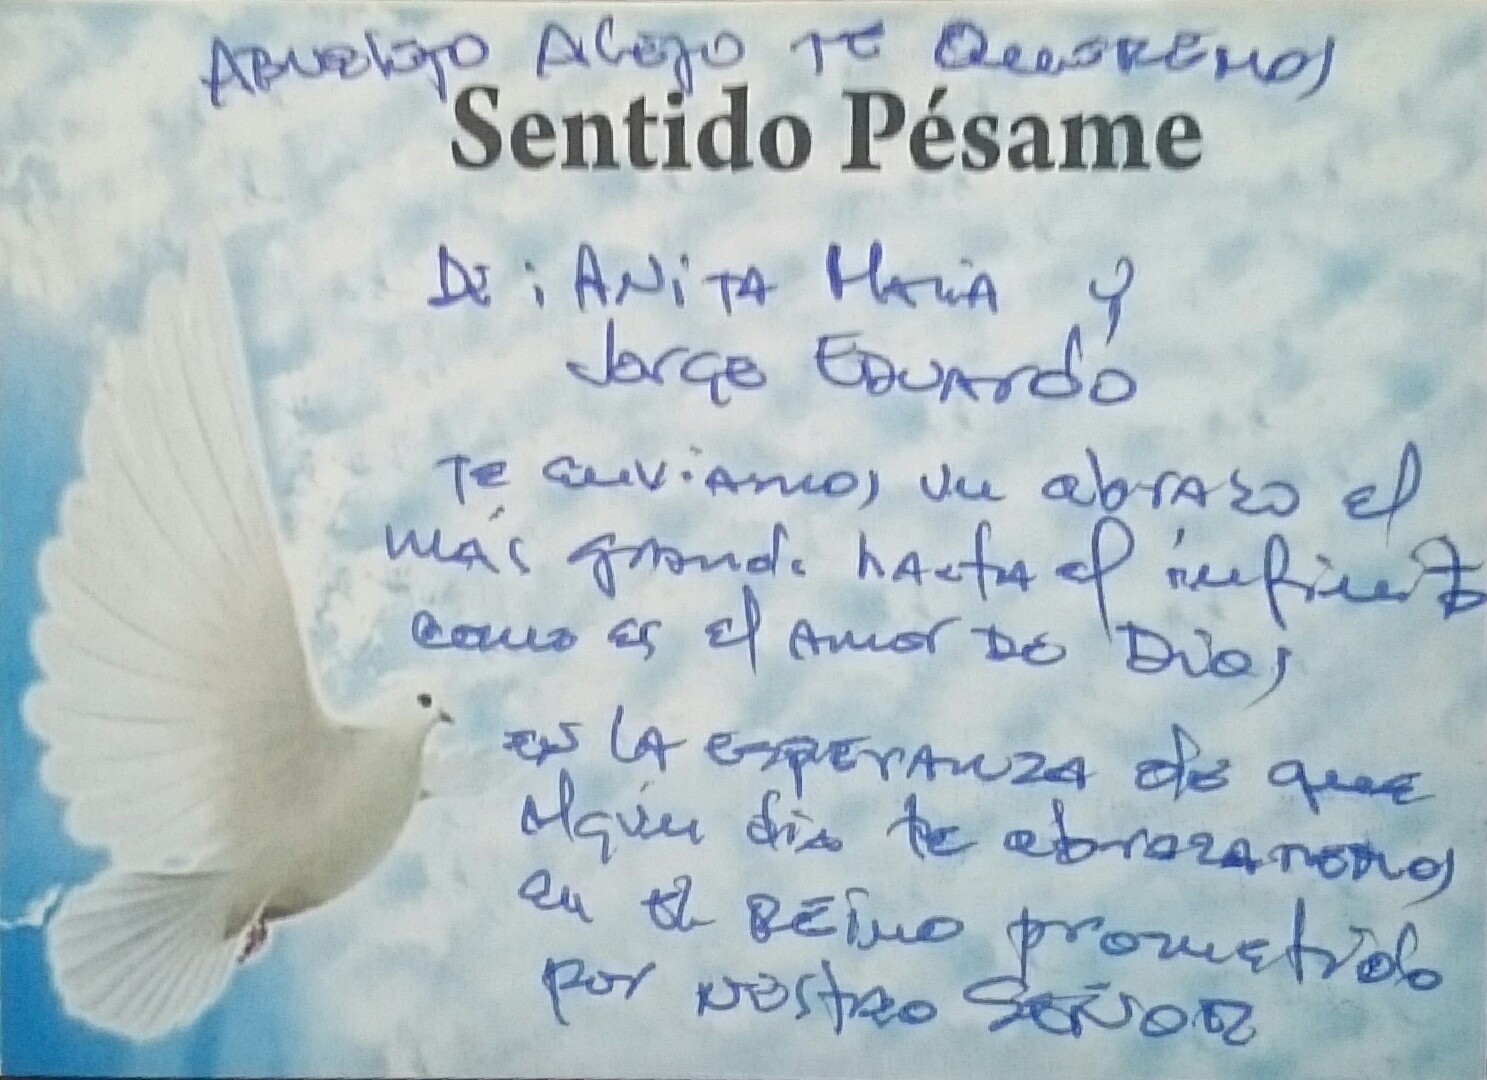 ABUELITO ALEJO TE QUEREMOS
Sentido Pésame
DE: ANITA MARIA Y
Jorge EDUARDO
TE enviamos un abrazo el
más grande hasta el infinito
como es el AMOR DE DIOS
EN LA ESPERANZA de que
algún día te abrazaremos
en el REINO prometido
por NUESTRO SEÑOR